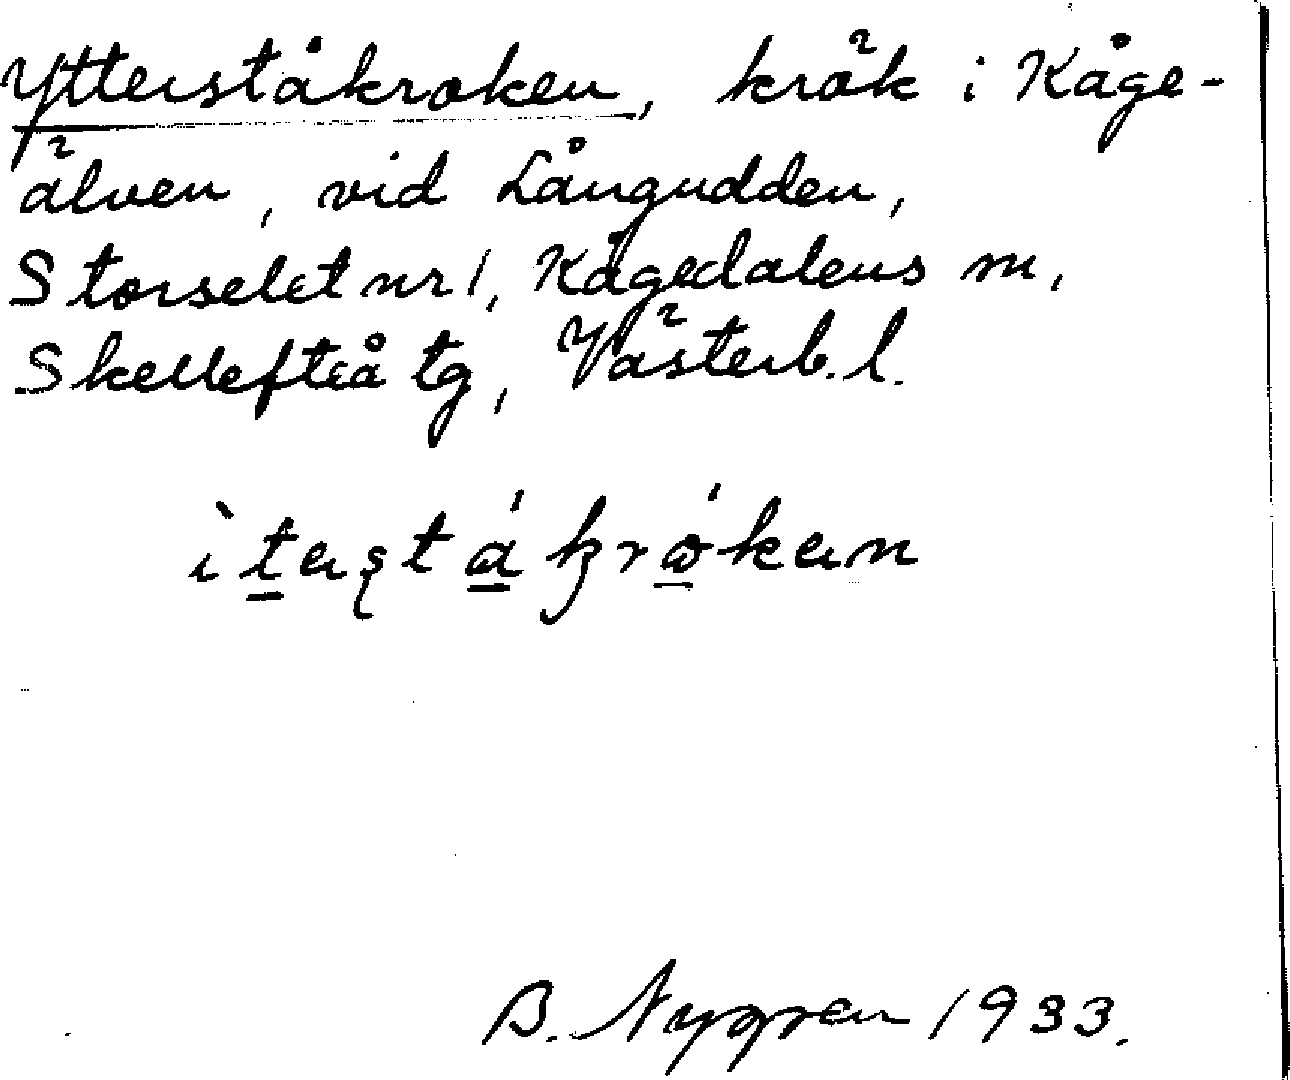 Ytterståkroken, krök i Kåge-
älven, vid Långudden,
Storselet nr 1, Kågedalens m,
Skellefteå tg, Västerb. l.
ìtestá̲kro̲̕ken
B. Nygren 1933.